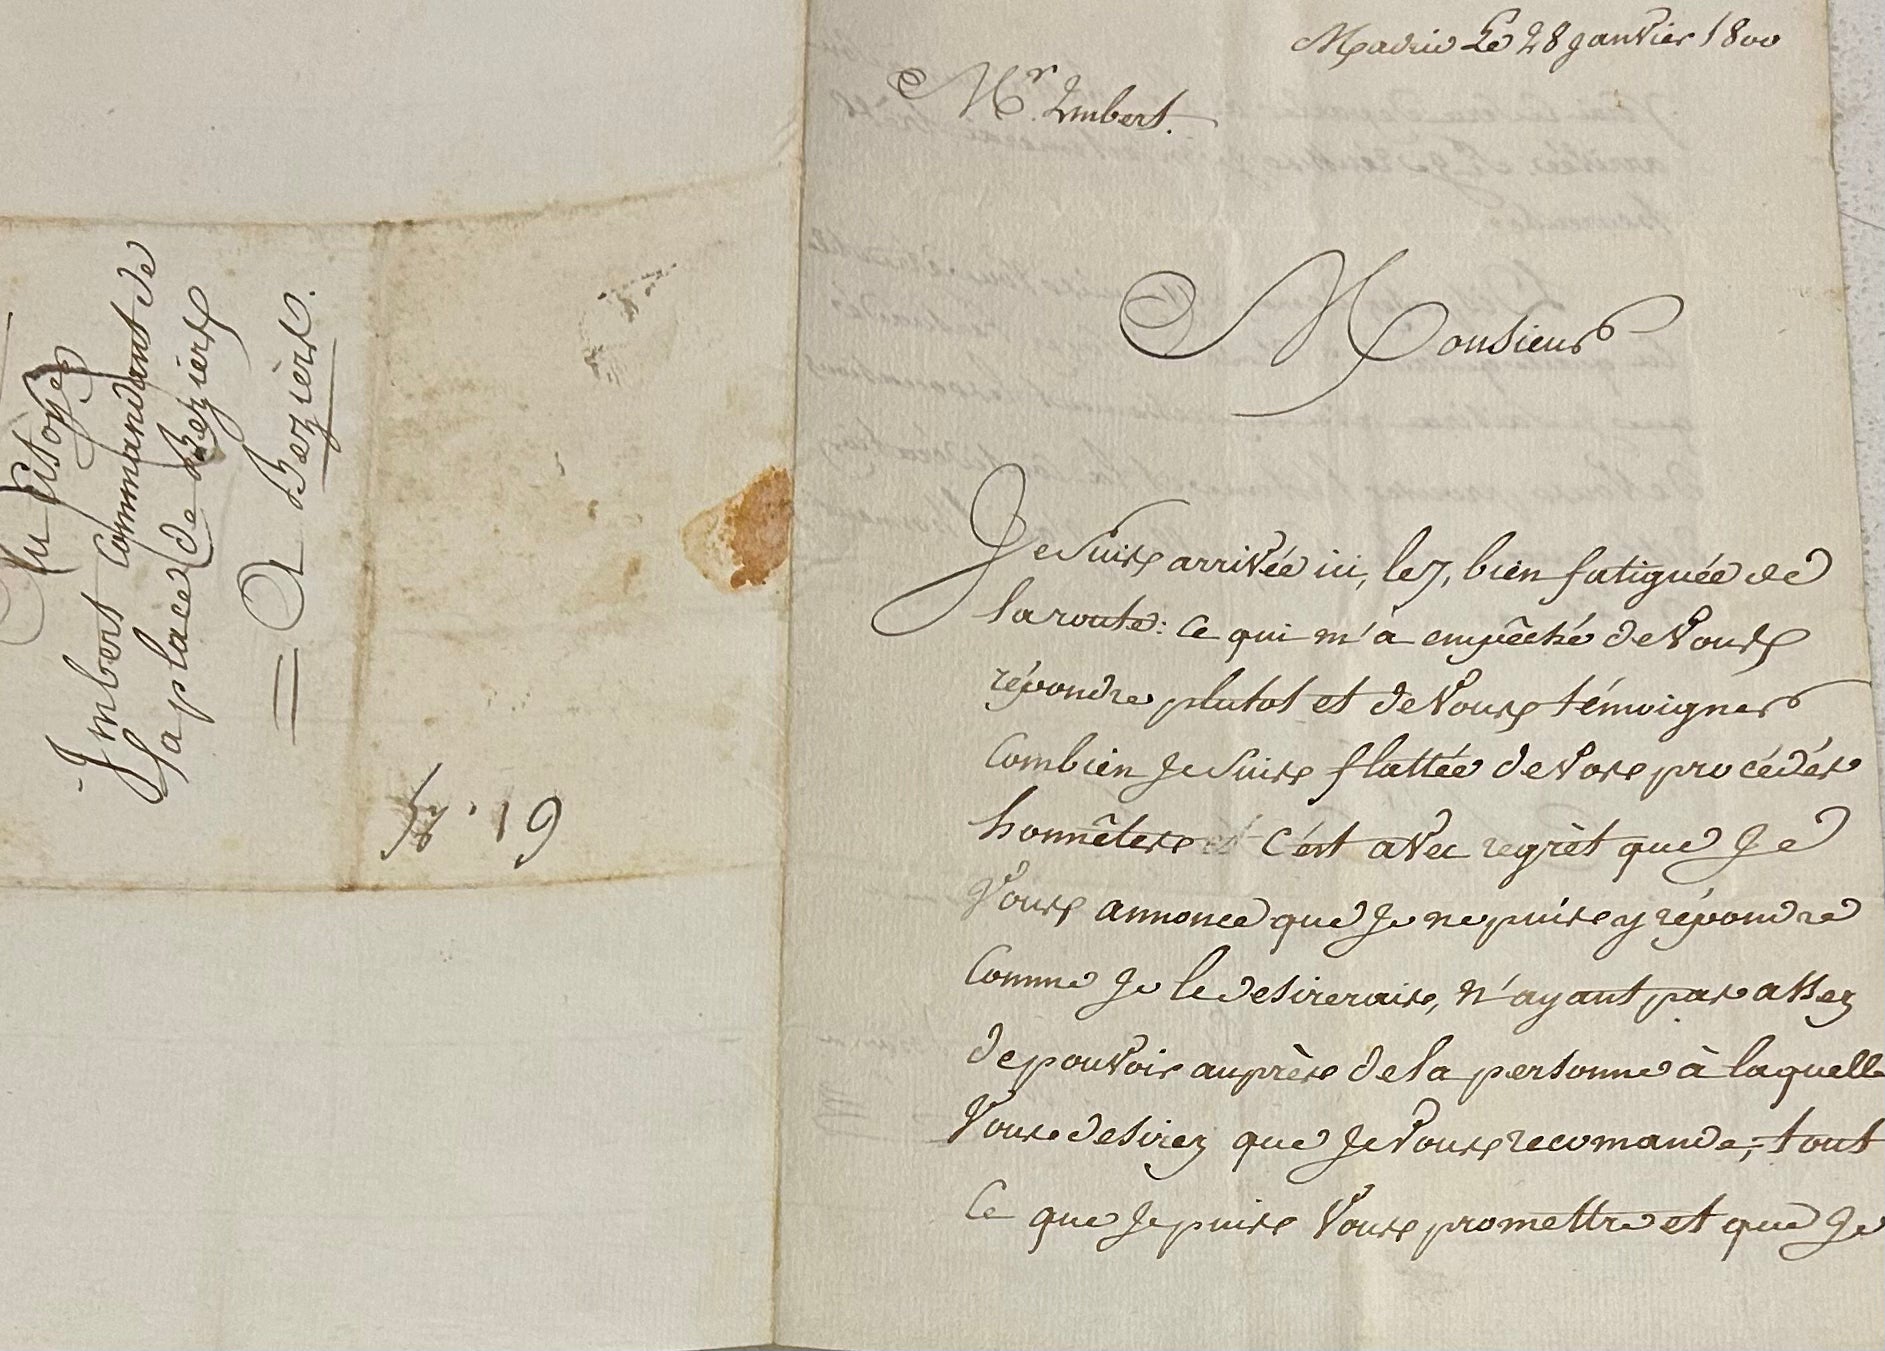 Au Citoyen
Imbert Commandant de
la place de Beziers
= A Beziers.
Madrid Le 28 janvier 1800
Mr. Imbert.
Monsieur
Je suis arrivée ici, le 7, bien fatiguée de
la route: ce qui m'a empêché de vous
répondre plutot et de vous témoigner
combien je suis flattée de vos procédés
honnêtes et c'est avec regrèt que je
vous annonce que je ne puis y répondre
comme je le desirerais, n'ayant pas assez
de pouvoir auprès de la personne à laquelle
vous desirez que je vous recomande, tout
ce que je puis vous promettre et que je